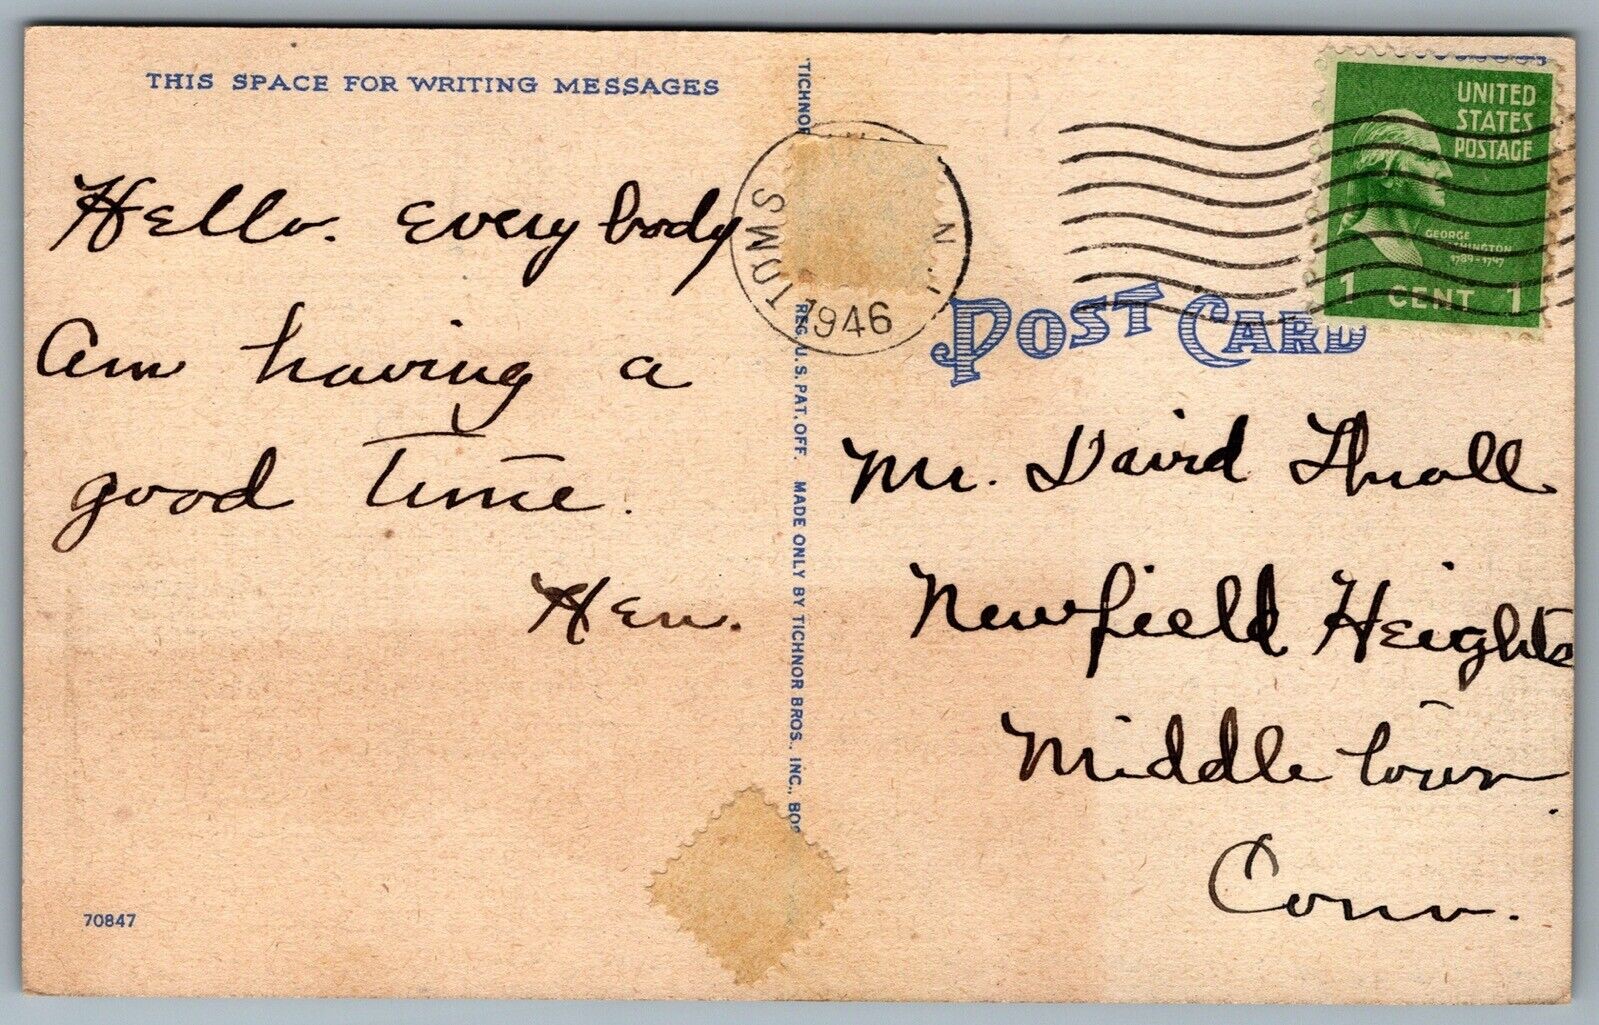 THIS SPACE FOR WRITING MESSAGES
Hello. Everybody
Am having a
good Time.
TOMS
N. J.
1946
UNITED
STATES
POSTAGE
GEORGE
1789-1797
1 CENT 1
POST CARD
Mr. David Thrall
Newfield Heights
Middletown.
Conn.
TICHNOR
REG. U.S. PAT. OFF. MADE ONLY BY TICHNOR BROS., INC., BOS
70847